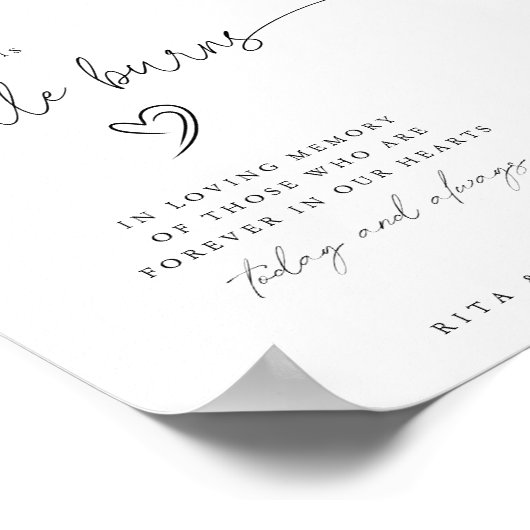 IS
le burns
IN LOVING MEMORY
OF THOSE WHO ARE
FOREVER IN OUR HEARTS
today and always
RITA &